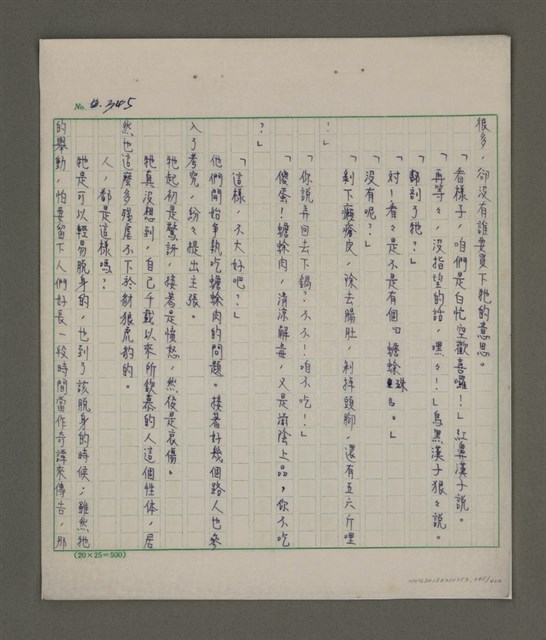 No. 4. 345
很多，卻沒有誰要買下牠的意思。
「看樣子，咱們是白忙空歡喜囉！」紅鼻漢子說。
「再等々，沒指望的話，嘿々！」烏黑漢子狠々說。
「翻剖了牠？」
「對！看々是不是有個『蟾蜍珠』。」
「沒有呢？」
「剝下癩瘡皮，除去腸肚，剁掉頭腳，還有五六斤哩
！」
「你說弄回去下鍋？不不！咱不吃！」
「傻蛋！蟾蜍肉，清涼解毒，又是滋陰上品，你不吃
？」
「這樣，不大好吧？」
他們開始爭執吃蟾蜍肉的問題。接著好幾個路人也參
入了考究，紛々提出主張。
牠起初是驚訝，接著是憤怒，然後是哀傷。
牠真沒想到，自己千載以來所欽慕的人這個性体，居
然也這麼多殘虐不下於豺狼虎豹的。
人，都是這樣嗎？
牠是可以輕易脫身的，也到了該脫身的時候；雖然牠
的舉動，怕要留下人們好長一段時間當作奇譚來傳告，那
(20×25=500)